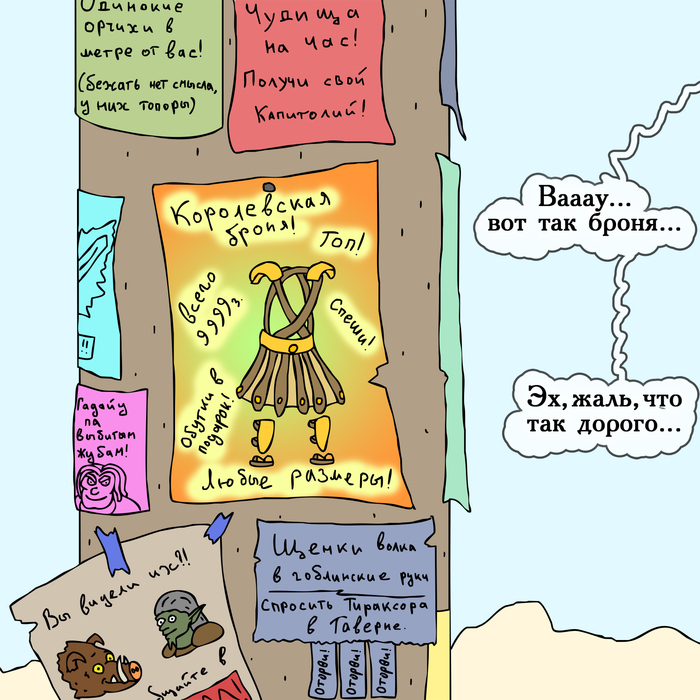 Одинокие
орчихи в
метре от вас!
(бежать нет смысла,
у них топоры)
Чудища
на час!
Получи свой
Капитолий!
Королевская
броня!
Топ!
всего
9999 з.
Спеши!
Обутки в
подарок!
Любые размеры!
!!
Гадаю
па
выбитым
зубам!
Вы видели их?!
в
Щенки волка
в гоблинские руки
Спросить Тираксора
в Таверне.
Оторви!
Оторви!
Оторви!
Вааау...
вот так броня...
Эх, жаль, что
так дорого...